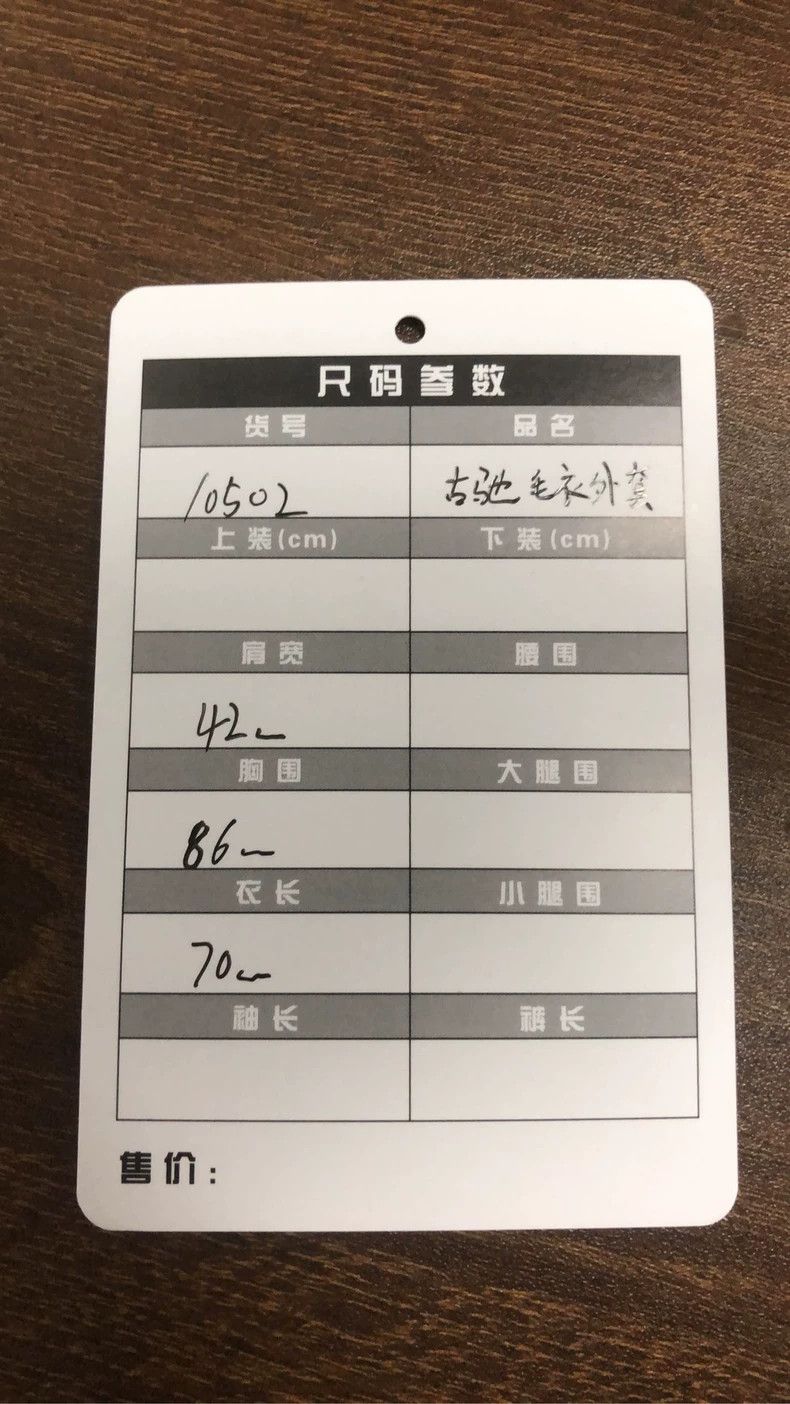 尺码参数
货号 品名
10502 古驰毛衣外套
上装(cm) 下装(cm)
肩宽 腰围
42cm
胸围 大腿围
86cm
衣长 小腿围
70cm
袖长 裤长
售价: